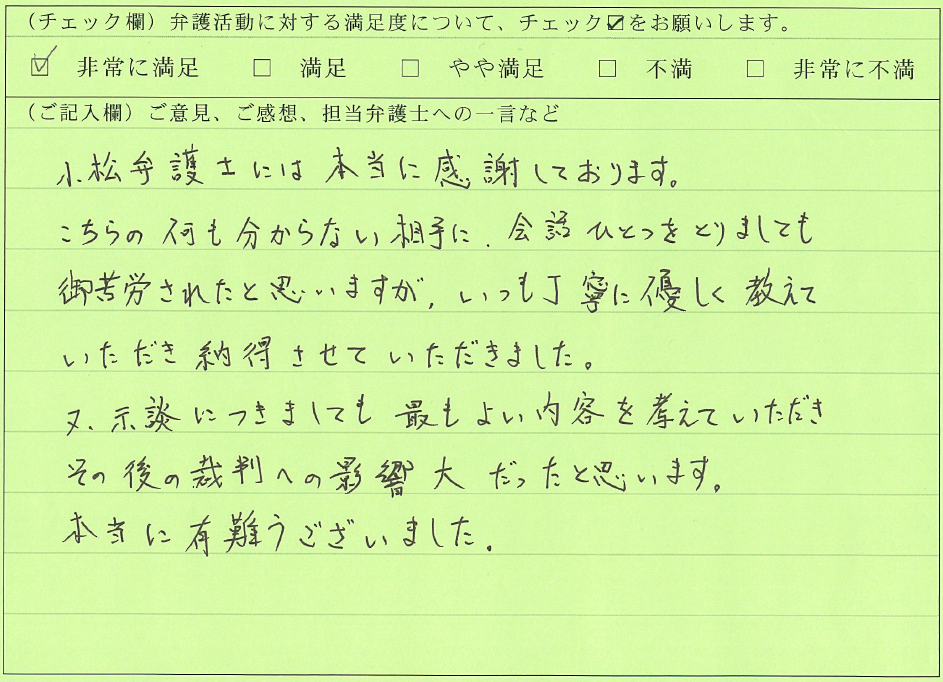 (チェック欄)弁護活動に対する満足度について、チェック☑をお願いします。
☑ 非常に満足 □ 満足 □ やや満足 □ 不満 □ 非常に不満
(ご記入欄)ご意見、ご感想、担当弁護士への一言など
小松弁護士には本当に感謝しております。
こちらの何も分からない相手に、会話ひとつをとりましても
御苦労されたと思いますが、いつも丁寧に優しく教えて
いただき納得させていただきました。
又、示談につきましても最もよい内容を考えていただき
その後の裁判への影響大だったと思います。
本当に有難うございました。